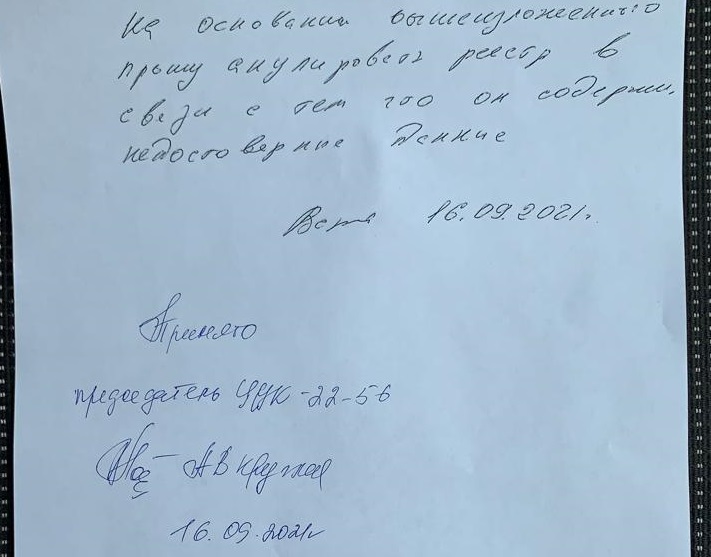 На основании вышеизложенного
прошу анулировать реестр в
связи с тем что он содержи
недостоверные данные
16.09.2021г.
Принято
председатель УИК-22-56
АВ
16.09.2021г